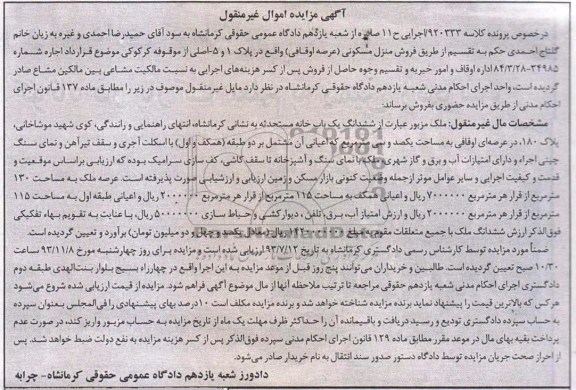 آگهی مزایده اموال غیرمنقول
درخصوص پرونده کلاسه ۹۲۰۳۳۳/اجرایی ح۱۱ صادره از شعبه یازدهم دادگاه عمومی حقوقی کرمانشاه به سود آقای حمیدرضا احمدی و غیره به زیان خانم
گلتاج احمدی حکم به تقسیم از طریق فروش منزل مسکونی (عرصه اوقافی) واقع در پلاک ۱ و ۵-اصلی از موقوفه کرکوکی موضوع قرارداد اجاره شماره
۳۴۹۸۵-۸۴/۳/۲۸ اداره اوقاف و امور خیریه و تقسیم وجوه حاصل از فروش پس از کسر هزینه‌های اجرایی به نسبت مالکیت مشاعی بین مالکین مشاع صادر
گردیده است، واحد اجرای احکام مدنی شعبه یازدهم دادگاه حقوقی کرمانشاه در نظر دارد مایل غیرمنقول موصوف در زیر را مطابق ماده ۱۳۷ قانون اجرای
احکام مدنی از طریق مزایده حضوری بفروش برساند:
مشخصات مال غیرمنقول: ملک مزبور عبارت از ششدانگ یک باب خانه مستحدثه به نشانی کرمانشاه، انتهای راهنمایی و رانندگی، کوی شهید موشاخانی،
پلاک ۱۸۰، در عرصه‌ای اوقافی به مساحت یکصد و سی مترمربع که اعیانی آن مشتمل بر دو طبقه (همکف و اول) با اسکلت آجری و سقف تیرآهن و نمای سنگ
چینی اجراء و دارای امتیازات آب و برق و گاز شهری، ملک با نمای سنگ و آشپزخانه تا سقف کاشی، کف سازی سرامیک بوده که ارزیابی براساس موقعیت و
قدمت و کیفیت اجرایی و سایر عوامل موثر ازجمله وضعیت کنونی بازار مسکن و زمین ارزیابی و ارزشیابی صورت پذیرفته است. عرصه ملک به مساحت ۱۳۰
مترمربع از قرار هر مترمربع ۷۰۰۰۰۰۰ ریال و اعیانی همکف به مساحت ۱۱۵ مترمربع از قرار هر مترمربع ۲۰۰۰۰۰۰ ریال و اعیانی طبقه اول به مساحت ۱۱۵
مترمربع از قرار هر مترمربع ۲۰۰۰۰۰۰ ریال و ارزش امتیاز آب، برق، تلفن، دیوارکشی و حیاط سازی ۵۰۰۰۰۰۰۰ ریال، با عنایت به تقویم بهاء تفکیکی
فوق‌الذکر ارزش ششدانگ ملک با جمیع متعلقات مقوم به مبلغ ریال (معادل یکصد و چهل و دو میلیون تومان) برآورد و تعیین گردیده است.
ضمناً مورد مزایده توسط کارشناس رسمی دادگستری کرمانشاه به تاریخ ۹۳/۷/۱۲ ارزیابی شده است و مزایده برای روز چهارشنبه مورخ ۹۳/۱۱/۸ ساعت
۱۰/۳۰ صبح تعیین گردیده است. طالبین و خریداران می‌توانند پنج روز قبل از موعد مزایده به این اجرا واقع در چهارراه بسیج بلوار بنت‌الهدی طبقه دوم
دادگستری اجرای احکام مدنی شعبه یازدهم حقوقی مراجعه تا ترتیب ملاحظه آنها از مال موضوع آگهی فراهم شود. مزایده از قیمت ارزیابی شده شروع می‌شود
هرکس که بالاترین قیمت را پیشنهاد نماید برنده مزایده شناخته خواهد شد و برنده مزایده مکلف است ۱۰درصد بهای پیشنهادی را فی‌المجلس بعنوان سپرده
به حساب سپرده دادگستری تودیع و رسید دریافت و باقیمانده آن را حداکثر ظرف مهلت یک ماه از تاریخ مزایده به حساب مزبور واریز کند، در صورت عدم
پرداخت بقیه بهای مال در موعد مقرر مطابق ماده ۱۲۹ قانون اجرای احکام مدنی سپرده فوق‌الذکر پس از کسر هزینه مزایده به نفع دولت ضبط خواهد شد. پس
از احراز صحت جریان مزایده توسط دادگاه دستور صدور سند انتقال به نام خریدار صادر می‌شود.
دادورز شعبه یازدهم دادگاه عمومی حقوقی کرمانشاه- چرابه